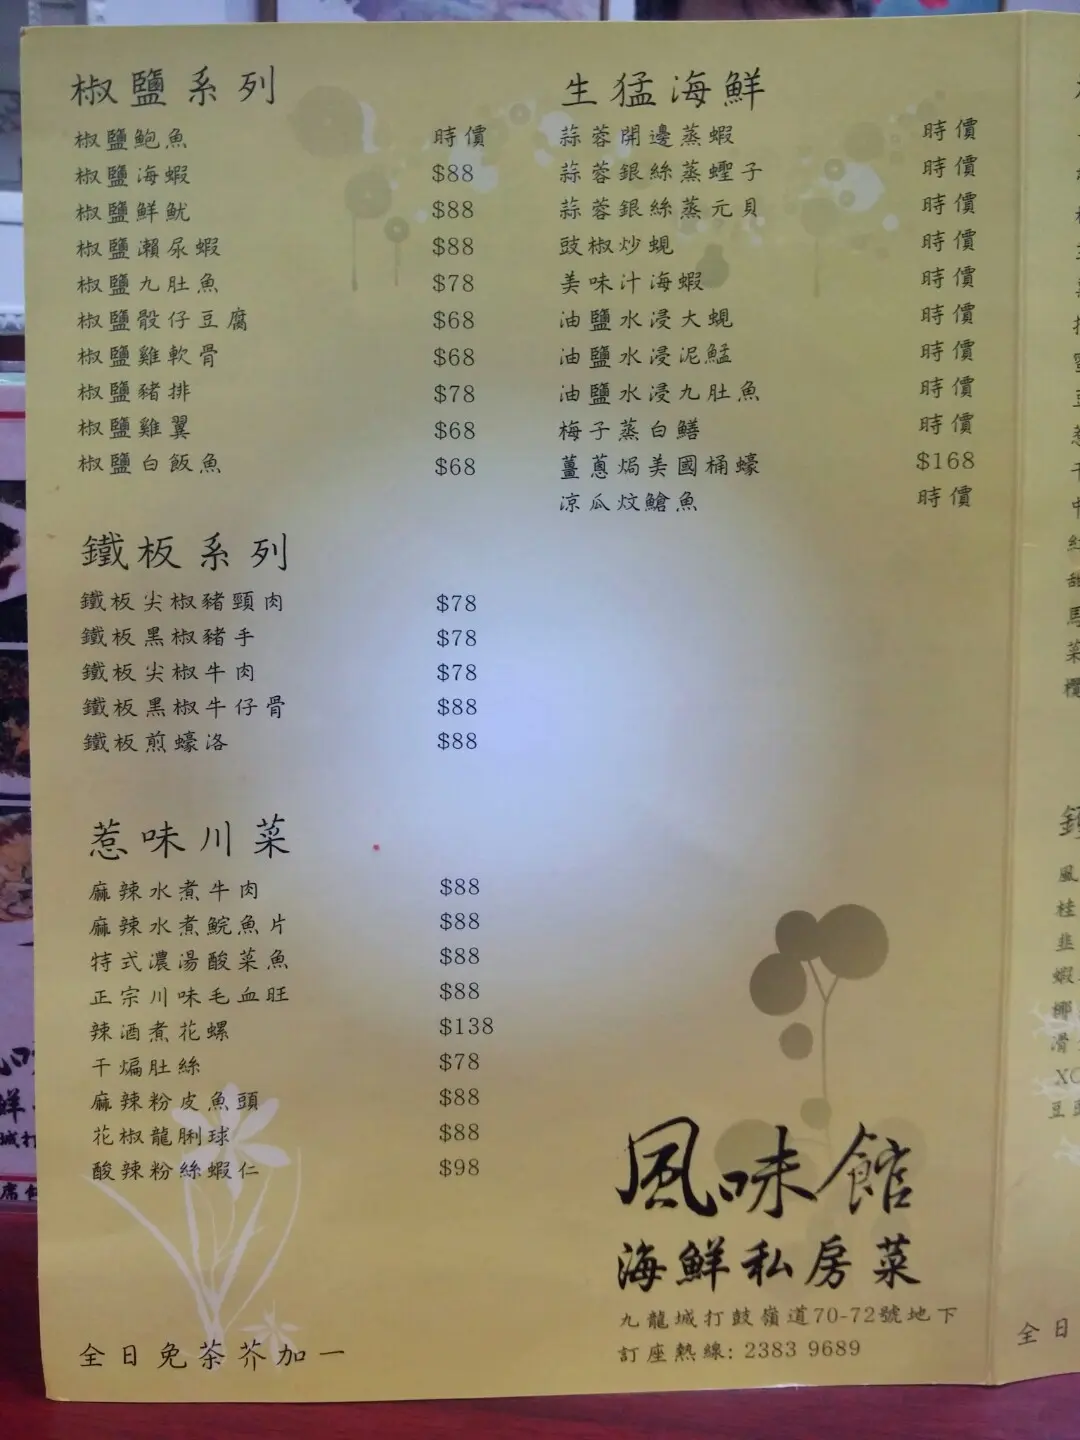 椒鹽系列
椒鹽鮑魚 時價
椒鹽海蝦 $88
椒鹽鮮魷 $88
椒鹽瀨尿蝦 $88
椒鹽九肚魚 $78
椒鹽骰仔豆腐 $68
椒鹽雞軟骨 $68
椒鹽豬排 $78
椒鹽雞翼 $68
椒鹽白飯魚 $68
鐵板系列
鐵板尖椒豬頸肉 $78
鐵板黑椒豬手 $78
鐵板尖椒牛肉 $78
鐵板黑椒牛仔骨 $88
鐵板煎蠔洛 $88
惹味川菜
麻辣水煮牛肉 $88
麻辣水煮鯇魚片 $88
特式濃湯酸菜魚 $88
正宗川味毛血旺 $88
辣酒煮花螺 $138
干煸肚絲 $78
麻辣粉皮魚頭 $88
花椒龍脷球 $88
酸辣粉絲蝦仁 $98
全日免茶芥加一
生猛海鮮
蒜蓉開邊蒸蝦 時價
蒜蓉銀絲蒸蟶子 時價
蒜蓉銀絲蒸元貝 時價
豉椒炒蜆 時價
美味汁海蝦 時價
油鹽水浸大蜆 時價
油鹽水浸泥鯭 時價
油鹽水浸九肚魚 時價
梅子蒸白鱔 時價
薑蔥焗美國桶蠔 $168
涼瓜炆鱠魚 時價
風味館
海鮮私房菜
九龍城打鼓嶺道70-72號地下
訂座熱線: 2383 9689
風
桂
韭
蝦
椰
滑
豆
全日